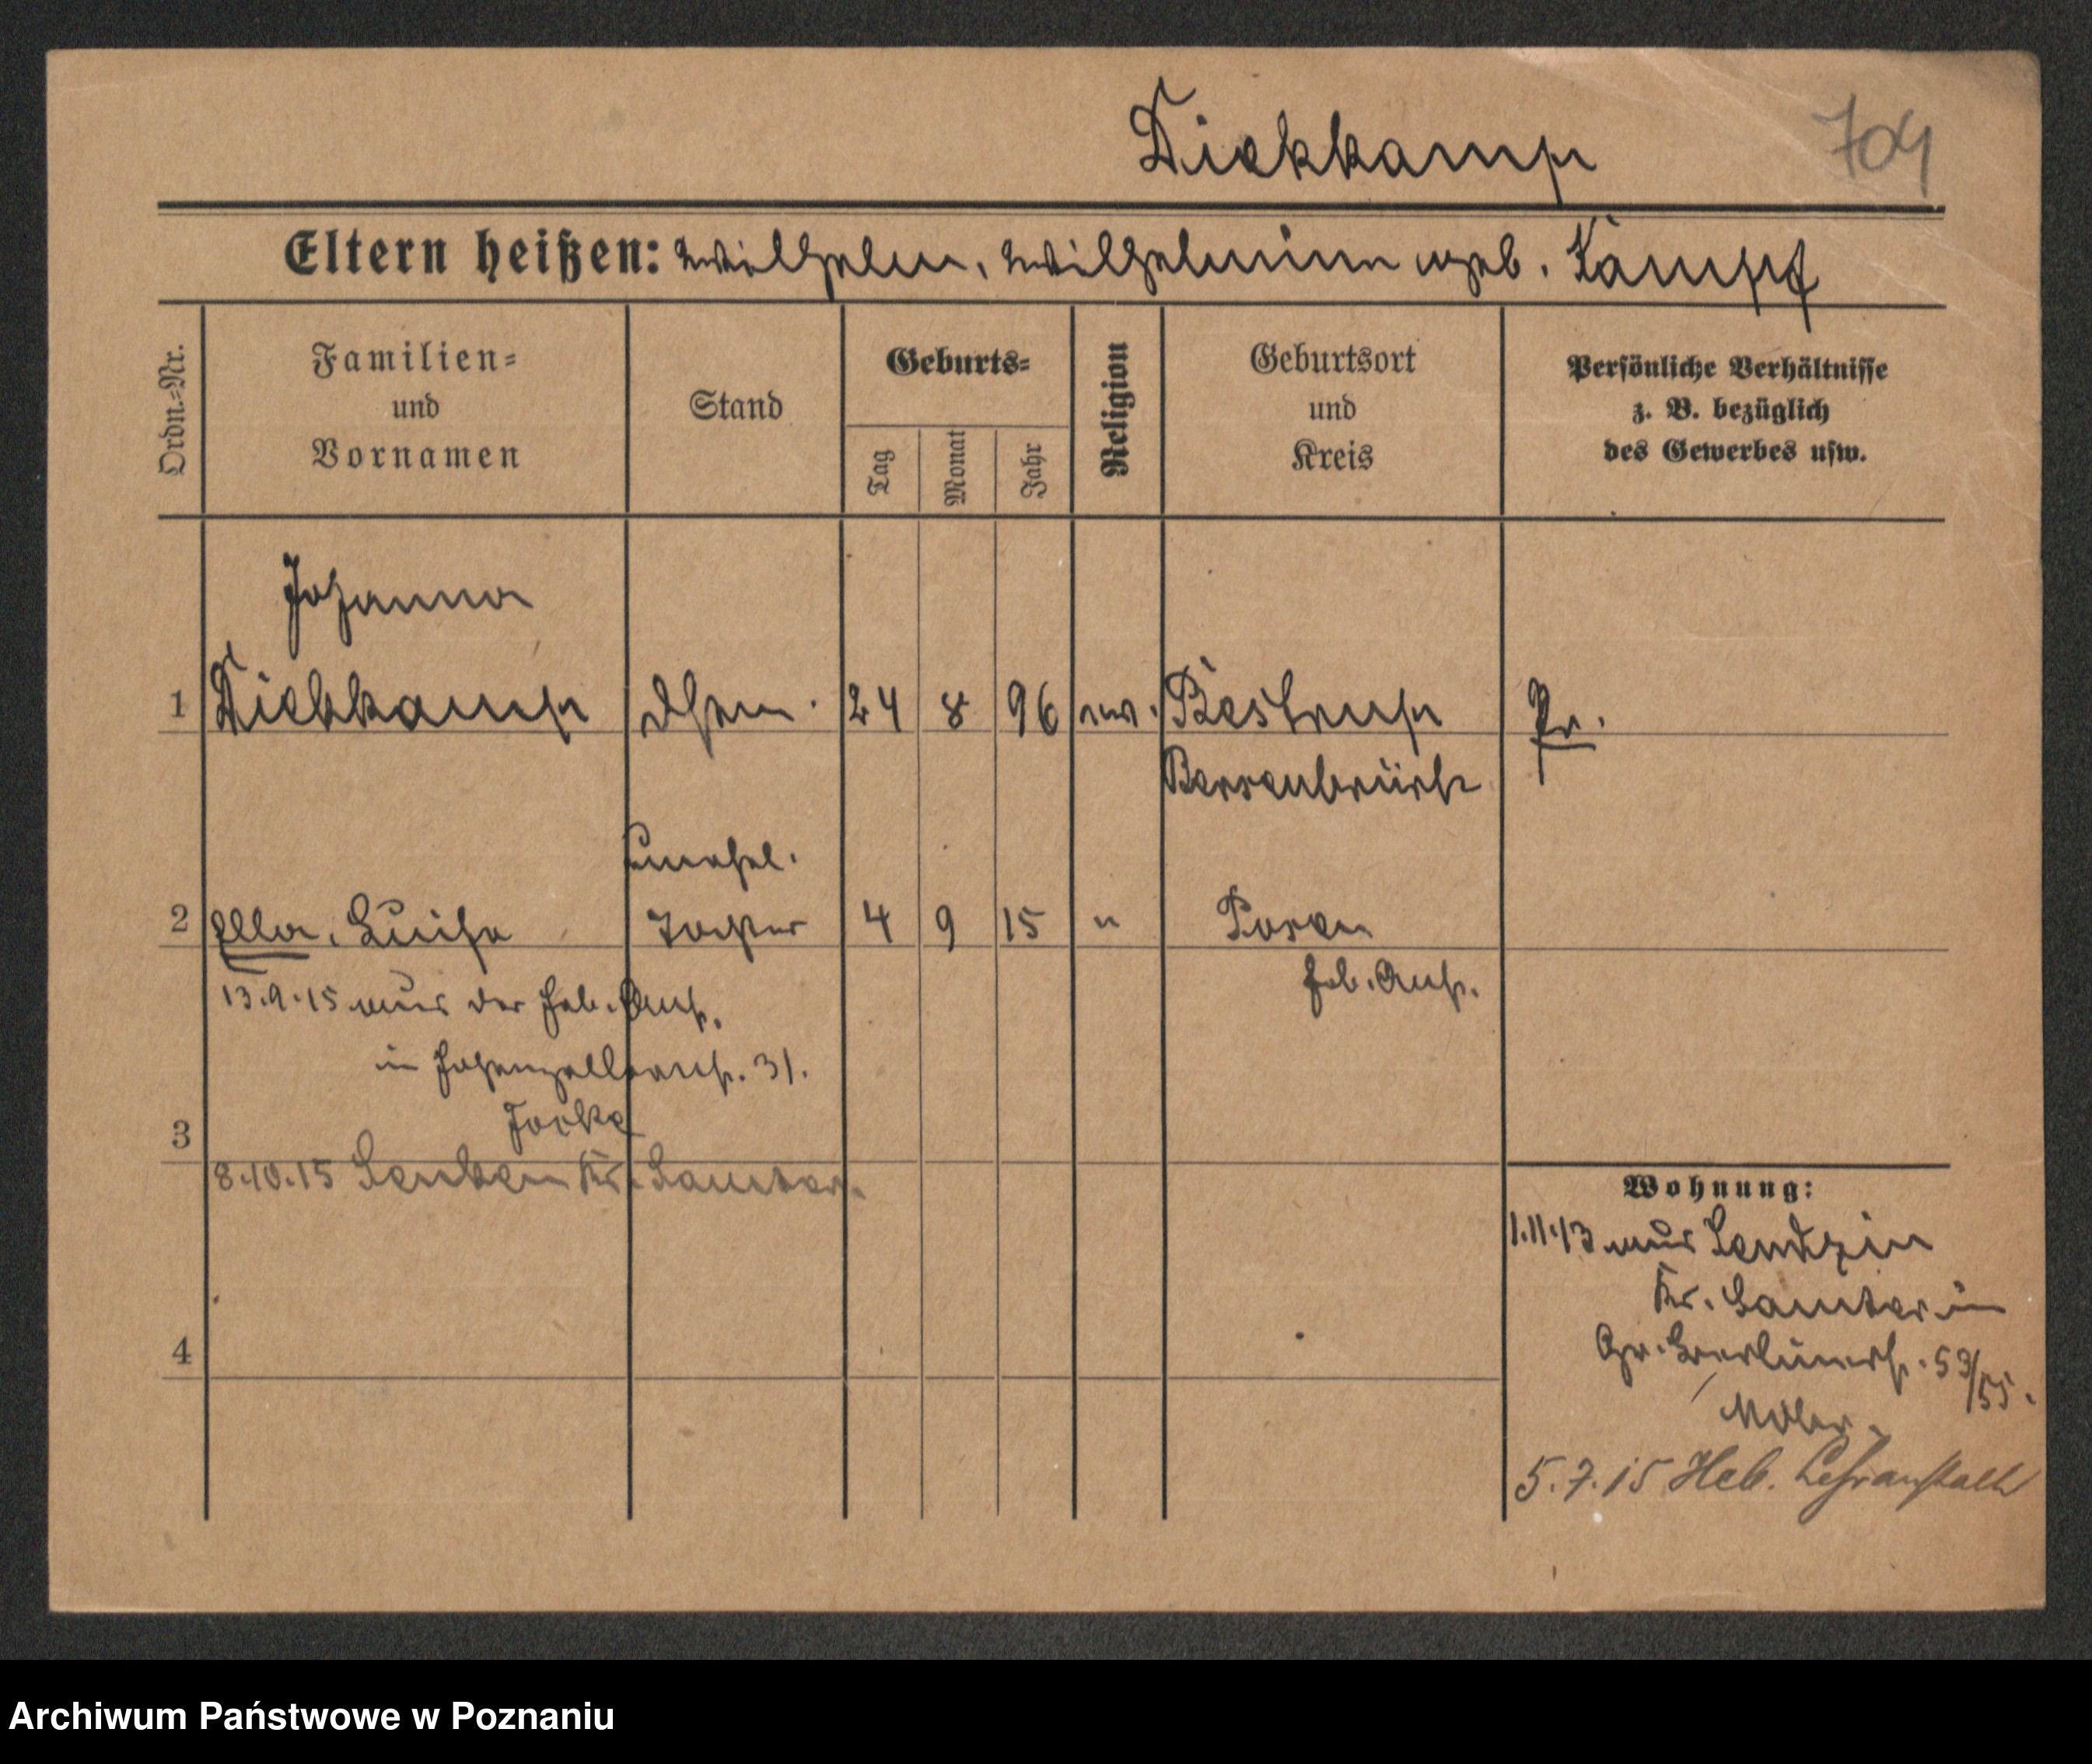 Diekkamp
704
Eltern heißen: Wilhelm, Wilhelmine geb. Kampf
Ordn.=Nr.
Familien=
und
Vornamen
Stand
Geburts=
Tag
Monat
Jahr
Religion
Geburtsort
und
Kreis
Persönliche Verhältnisse
z. B. bezüglich
des Gewerbes usw.
Johanna
1 Diekkamp 24 8 96 ev. Bestrup Pr.
Bersenbrück
unehel.
2 Ella, Luise Tochter 4 9 15 " Posen
Heb. Anst.
13.9.15 aus der Heb. Anst.
in Hohenzollernstr. 31.
3
8.10.15 Kr. Samter.
Wohnung:
1.11.13 aus
Kr. Samter in
4
Gr. Berlinerstr. 53/55.
5.7.15 Heb. Lehranstalt
Archiwum Państwowe w Poznaniu